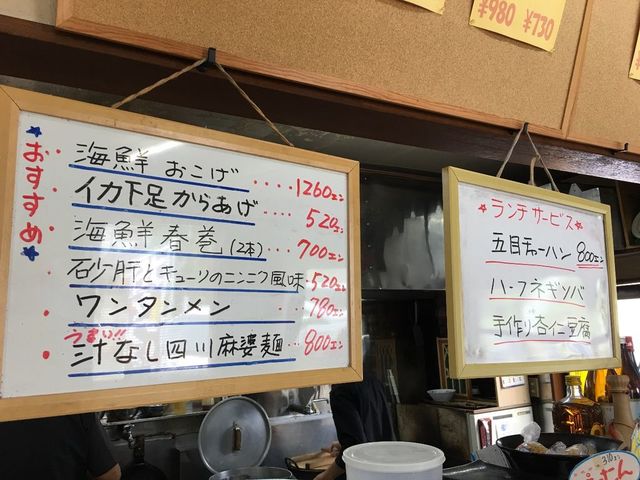 ¥980 ¥730
おすすめ
海鮮 おこげ ····1260エン
イカ下足からあげ ····520エン
海鮮春巻(2本)···700エン
砂肝とキューリのニンニク風味··520エン
ワンタンメン ······780エン
うまい!!
汁なし四川麻婆麺···800エン
ランチサービス
五目チャーハン 800エン
ハーフネギソバ
手作り杏仁豆腐
310エン